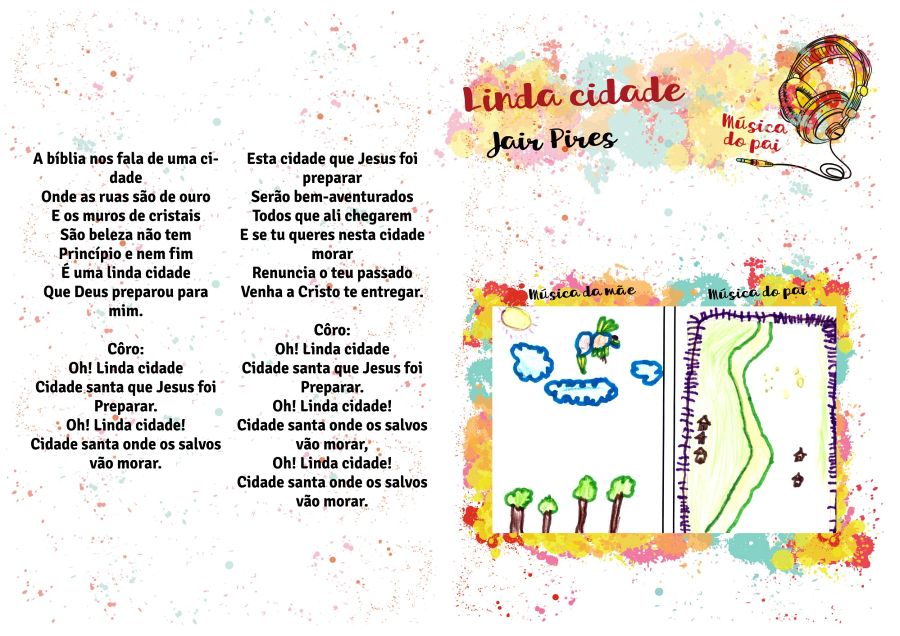 A bíblia nos fala de uma ci-
dade
Onde as ruas são de ouro
E os muros de cristais
São beleza não tem
Princípio e nem fim
É uma linda cidade
Que Deus preparou para
mim.
Côro:
Oh! Linda cidade
Cidade santa que Jesus foi
Preparar.
Oh! Linda cidade!
Cidade santa onde os salvos
vão morar.
Esta cidade que Jesus foi
preparar
Serão bem-aventurados
Todos que ali chegarem
E se tu queres nesta cidade
morar
Renuncia o teu passado
Venha a Cristo te entregar.
Côro:
Oh! Linda cidade
Cidade santa que Jesus foi
Preparar.
Oh! Linda cidade!
Cidade santa onde os salvos
vão morar,
Oh! Linda cidade!
Cidade santa onde os salvos
vão morar.
Linda cidade
Jair Pires
Música
do pai
Música da mãe
Música do pai